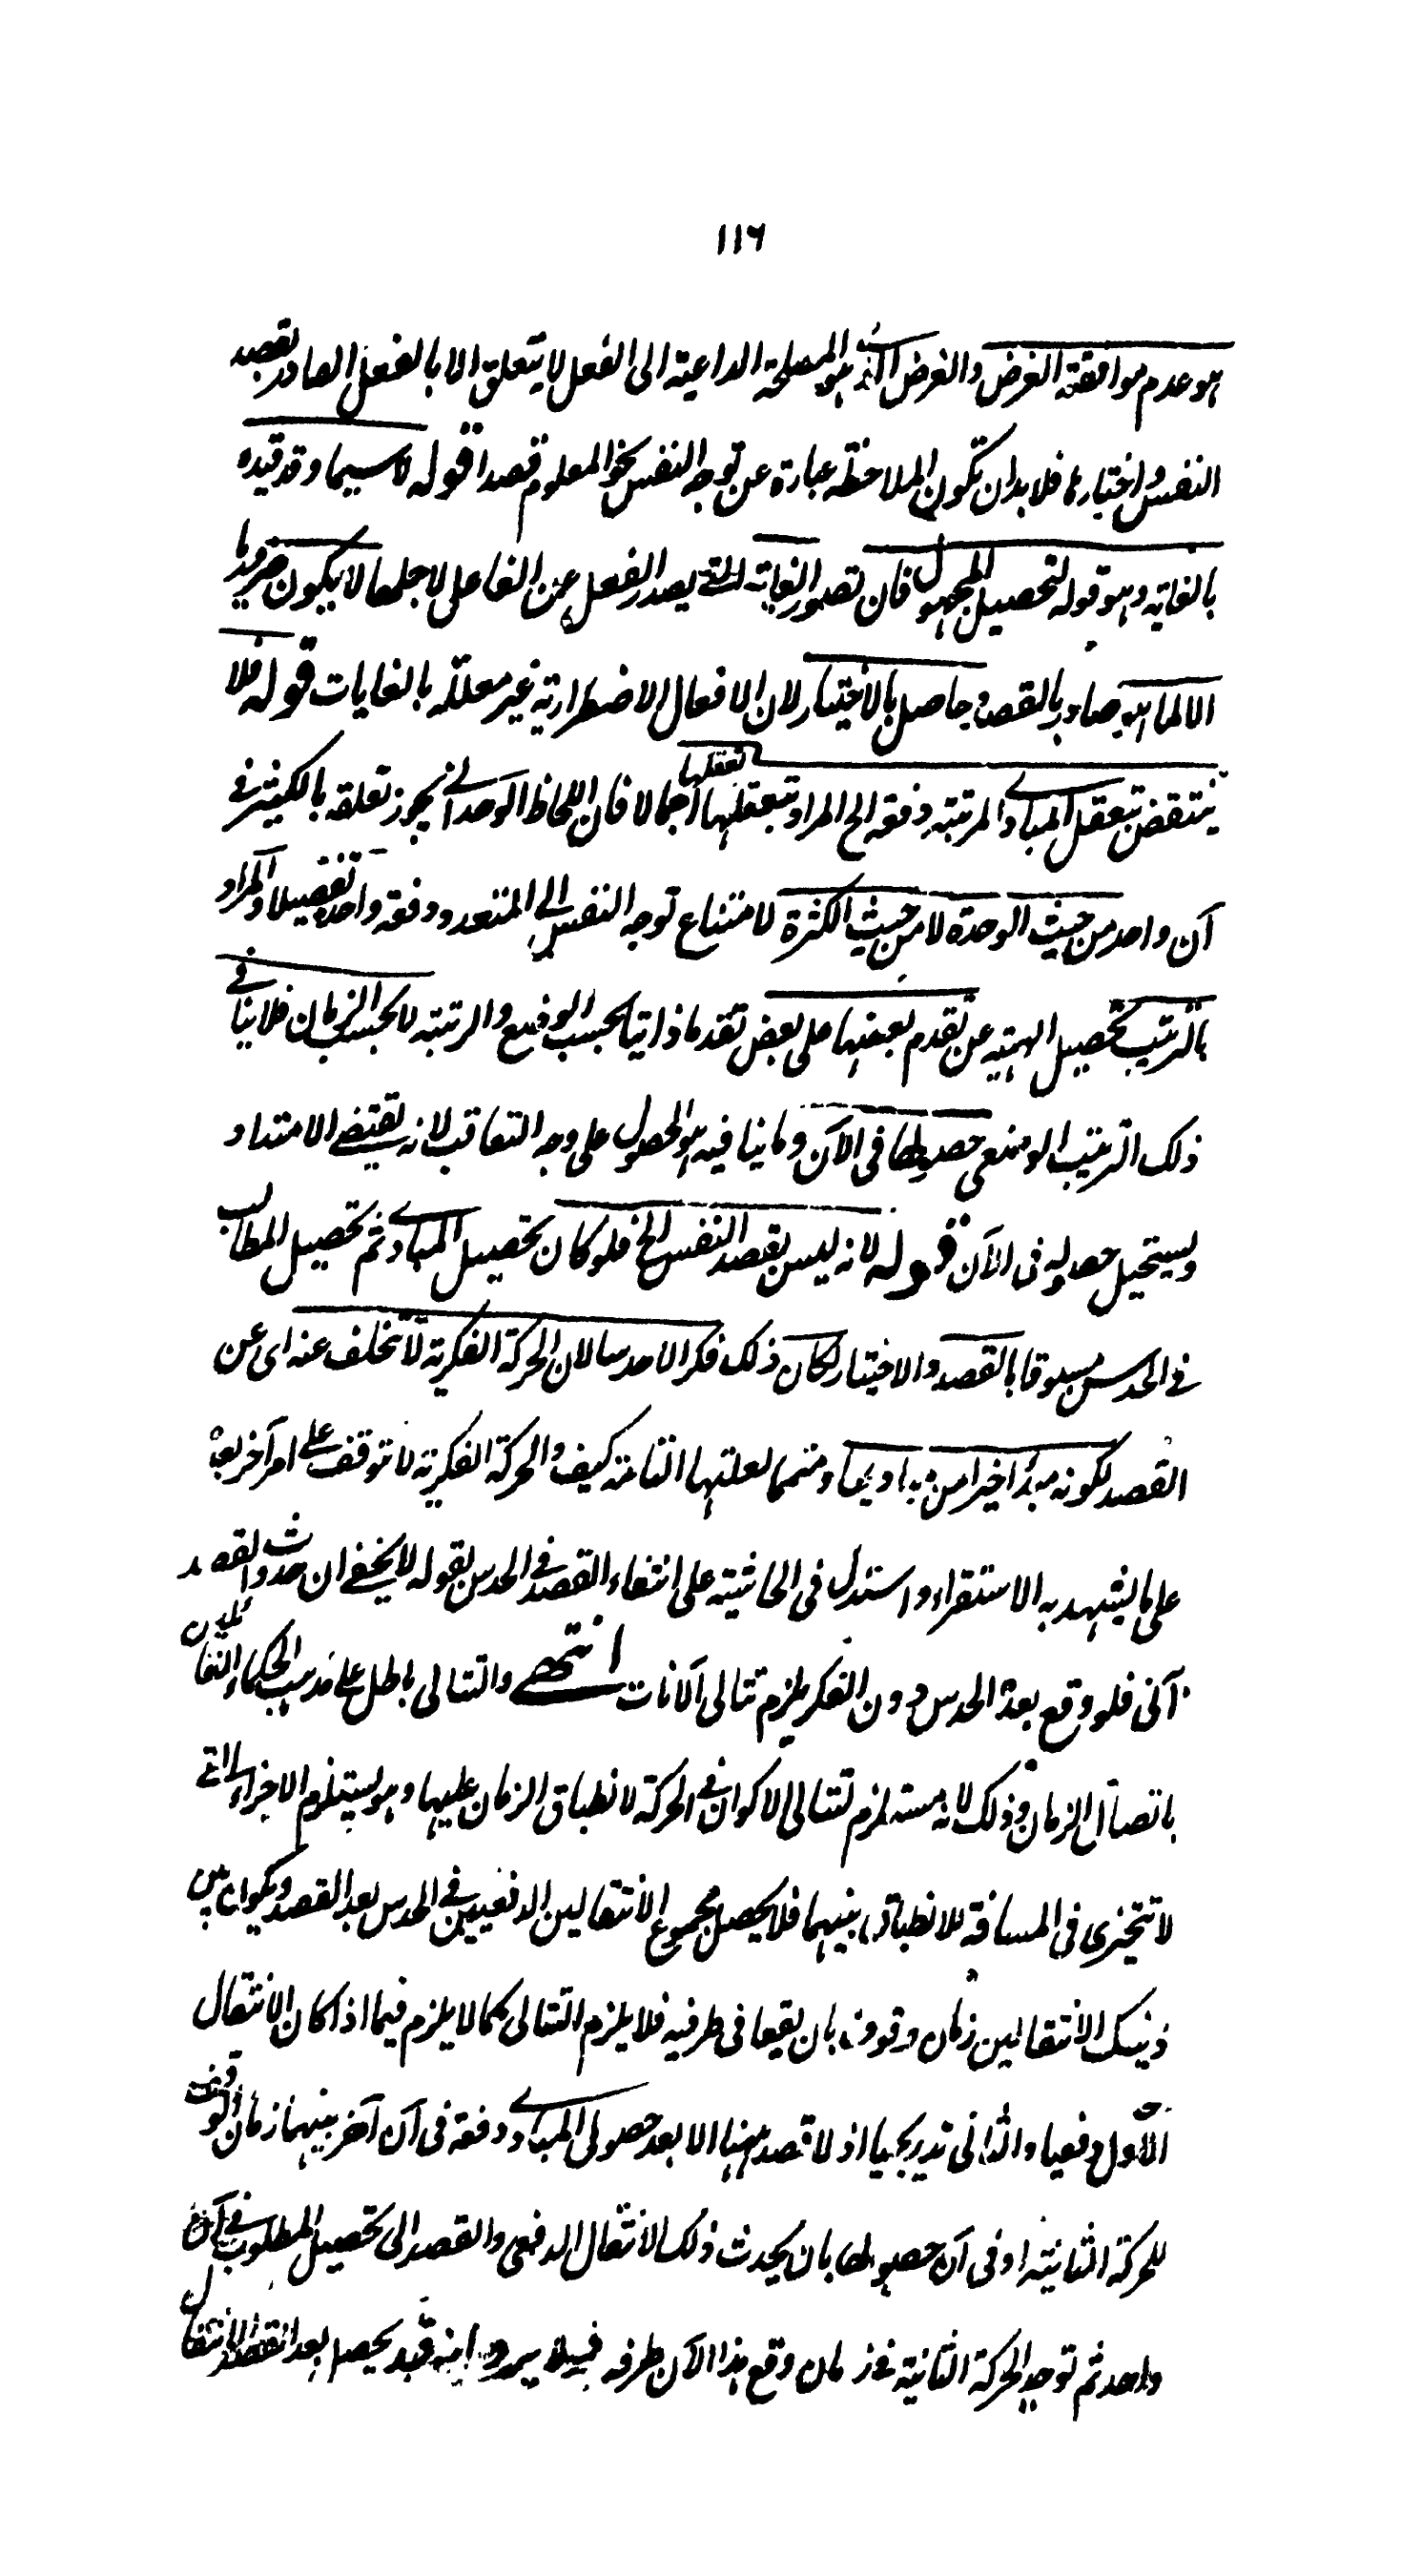 ١١٦
هو عدم موافقة الغرض والغرض الذي هو المصلحة الداعية الى الفعل لا يتعلق الا بالفعل الصادر بقصد
النفس واختيارها فلا بد ان تكون الملاحظة عبارة عن توجه النفس نحو المعلوم قصدا قوله لا سيما وقد قيده
بالغاية وهو قوله لتحصيل المجهول فان تصور الغاية التي يصدر الفعل عن الفاعل لاجلها لا يكون ضروريا
الا لما هو صادر بالقصد وحاصل بالاختيار لان الافعال الاضطرارية غير معللة بالغايات قوله فلا
ينتقض بتعقل المبادي المرتبة دفعة الخ المراد بتعقلها تعقلها اجمالا فان اللحاظ الوحداني يجوز تعلقه بالكثير في
آن واحد من حيث الوحدة لا من حيث الكثرة لامتناع توجه النفس الى المتعدد دفعة واحدة تفصيلا والمراد
بالترتيب تحصيل الهيئة عن تقدم بعضها على بعض تقدما ذاتيا بحسب الوضع والرتبة لا بحسب الزمان فلا ينافي
ذلك الترتيب الوضعي حصولها في الآن وما ينافيه هو الحصول على وجه التعاقب لانه يقتضي الامتداد
ويستحيل حصوله في الآن قوله لانه ليس بقصد النفس الخ فلو كان تحصيل المبادي ثم تحصيل المطالب
في الحدس مسبوقا بالقصد والاختيار لكان ذلك فكرا لا حدسا لان الحركة الفكرية لا تتخلف عنه اي عن
القصد لكونه مبدأ اخيرا من مباديها ومتمما لعلتها التامة كيف والحركة الفكرية لا تتوقف على امر آخر بعده
على ما يشهد به الاستقراء واستدل في الحاشية على انتفاء القصد في الحدس بقوله لا يخفى ان حدوث القصد
آني فلو وقع بعده الحدس دون الفكر يلزم تتالي الآنات انتهى والتتالي باطل على مذهب الحكماء القائلين
باتصال الزمان وذلك لانه مستلزم لتتالي الاكوان في الحركة لانطباق الزمان عليها وهو يستلزم الاجزاء التي
لا تتجزى في المسافة للانطباق بينهما فلا يحصل مجموع الانتقالين الدفعيين في الحدس بعد القصد ويكون بين
ذينك الانتقالين زمان وقوف بان يقعا في طرفيه فلا يلزم التتالي كما لا يلزم فيما اذا كان الانتقال
الاول دفعيا والثاني تدريجيا اذ لا قصد ههنا الا بعد حصول المبادي دفعة في آن آخر بينهما زمان الوقوف
للحركة الثانية او في آن حصولها بان يحدث ذلك الانتقال الدفعي والقصد الى تحصيل المطلوب في آن
واحد ثم توجد الحركة الثانية في زمان وقع هذا الآن طرفه فلا يرد انه قد يحصل بعد القصد الانتقال